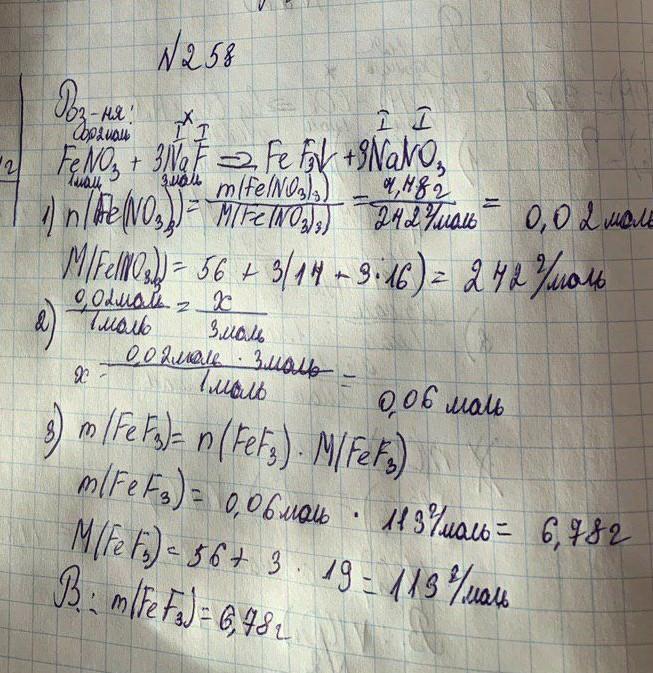 N258
Роз-ня:
0,02моль х
I I I I
FeNO₃ + 3NaF => FeF₃↓ + 3NaNO₃
1моль 3моль
1) n(Fe(NO₃)₃) = m(Fe(NO₃)₃) / M(Fe(NO₃)₃) = 4,48г / 242 г/моль = 0,02 моль
M(Fe(NO₃)₃) = 56 + 3(14 + 3·16) = 242 г/моль
2) 0,02моль / 1моль = x / 3моль
x = 0,02моль · 3моль / 1моль = 0,06 моль
3) m(FeF₃) = n(FeF₃) · M(FeF₃)
m(FeF₃) = 0,06моль · 113 г/моль = 6,78г
M(FeF₃) = 56 + 3 · 19 = 113 г/моль
В.: m(FeF₃) = 6,78г